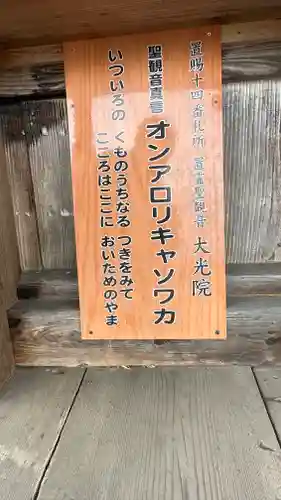 置賜十四番札所 置霊聖観音 大光院
聖観音真言 オンアロリキャソワカ
いついろの くものうちなる つきをみて
こころはここに おいためのやま